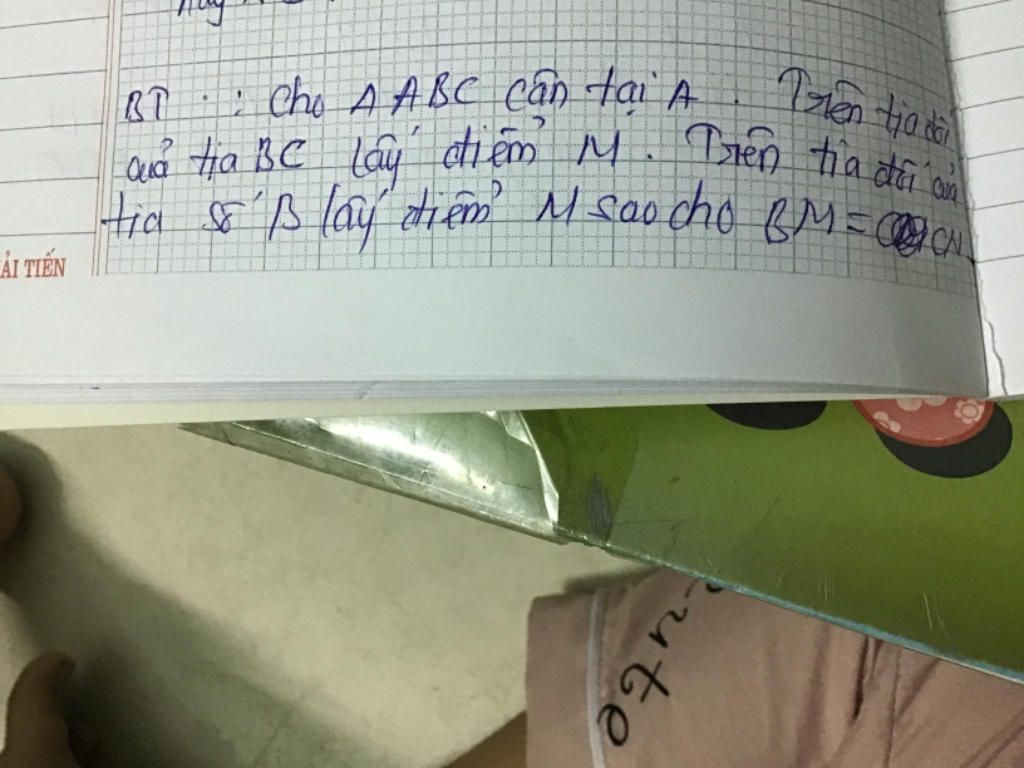 BT : Cho Δ ABC cân tại A. Trên tia đối
của tia BC lấy điểm M. Trên tia đối của
tia số B lấy điểm M sao cho BM = CN
ẢI TIẾN